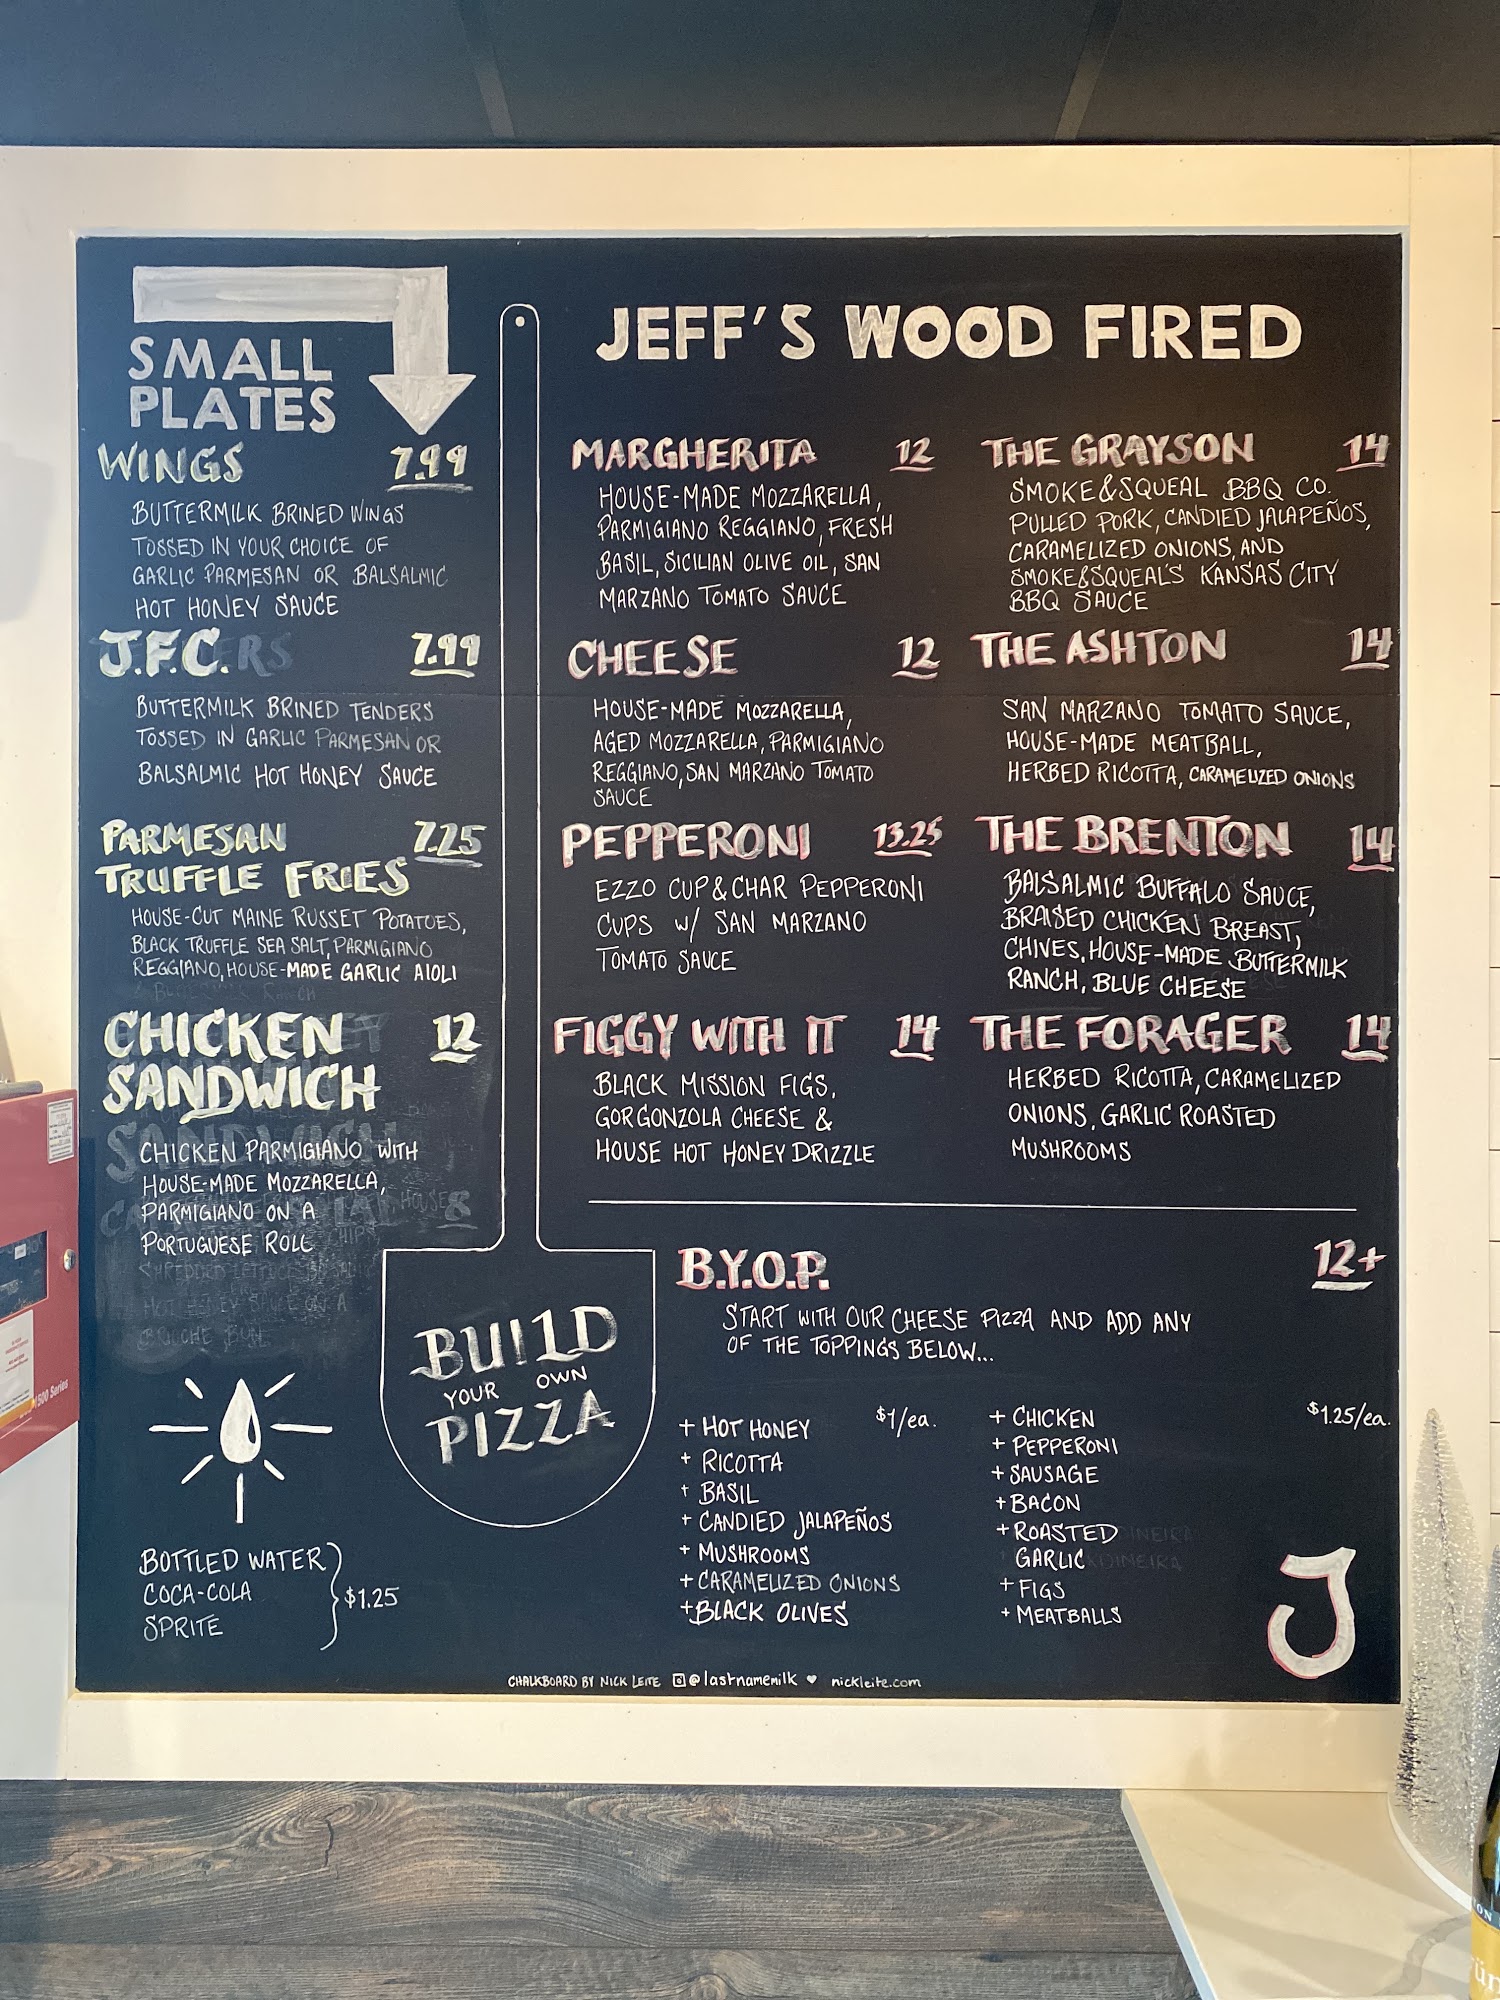 SMALL
PLATES
WINGS 7.99
BUTTERMILK BRINED WINGS
TOSSED IN YOUR CHOICE OF
GARLIC PARMESAN OR BALSALMIC
HOT HONEY SAUCE
J.F.C. 7.99
BUTTERMILK BRINED TENDERS
TOSSED IN GARLIC PARMESAN OR
BALSALMIC HOT HONEY SAUCE
PARMESAN 7.25
TRUFFLE FRIES
HOUSE-CUT MAINE RUSSET POTATOES,
BLACK TRUFFLE SEA SALT, PARMIGIANO
REGGIANO, HOUSE-MADE GARLIC AIOLI
CHICKEN 12
SANDWICH
CHICKEN PARMIGIANO WITH
HOUSE-MADE MOZZARELLA,
PARMIGIANO ON A
PORTUGUESE ROLL
BOTTLED WATER
COCA-COLA $1.25
SPRITE
BUILD
YOUR OWN
PIZZA
JEFF'S WOOD FIRED
MARGHERITA 12
HOUSE-MADE MOZZARELLA,
PARMIGIANO REGGIANO, FRESH
BASIL, SICILIAN OLIVE OIL, SAN
MARZANO TOMATO SAUCE
CHEESE 12
HOUSE-MADE MOZZARELLA,
AGED MOZZARELLA, PARMIGIANO
REGGIANO, SAN MARZANO TOMATO
SAUCE
PEPPERONI 13.25
EZZO CUP & CHAR PEPPERONI
CUPS w/ SAN MARZANO
TOMATO SAUCE
FIGGY WITH IT 14
BLACK MISSION FIGS,
GORGONZOLA CHEESE &
HOUSE HOT HONEY DRIZZLE
THE GRAYSON 14
SMOKE&SQUEAL BBQ CO.
PULLED PORK, CANDIED JALAPEÑOS,
CARAMELIZED ONIONS, AND
SMOKE&SQUEAL'S KANSAS CITY
BBQ SAUCE
THE ASHTON 14
SAN MARZANO TOMATO SAUCE,
HOUSE-MADE MEATBALL,
HERBED RICOTTA, CARAMELIZED ONIONS
THE BRENTON 14
BALSALMIC BUFFALO SAUCE,
BRAISED CHICKEN BREAST,
CHIVES, HOUSE-MADE BUTTERMILK
RANCH, BLUE CHEESE
THE FORAGER 14
HERBED RICOTTA, CARAMELIZED
ONIONS, GARLIC ROASTED
MUSHROOMS
B.Y.O.P. 12+
START WITH OUR CHEESE PIZZA AND ADD ANY
OF THE TOPPINGS BELOW...
+ HOT HONEY $1/ea.
+ RICOTTA
+ BASIL
+ CANDIED JALAPEÑOS
+ MUSHROOMS
+ CARAMELIZED ONIONS
+ BLACK OLIVES
+ CHICKEN $1.25/ea.
+ PEPPERONI
+ SAUSAGE
+ BACON
+ ROASTED
GARLIC
+ FIGS
+ MEATBALLS
J
CHALKBOARD BY NICK LEITE @lastnamemilk ♥ nickleite.com